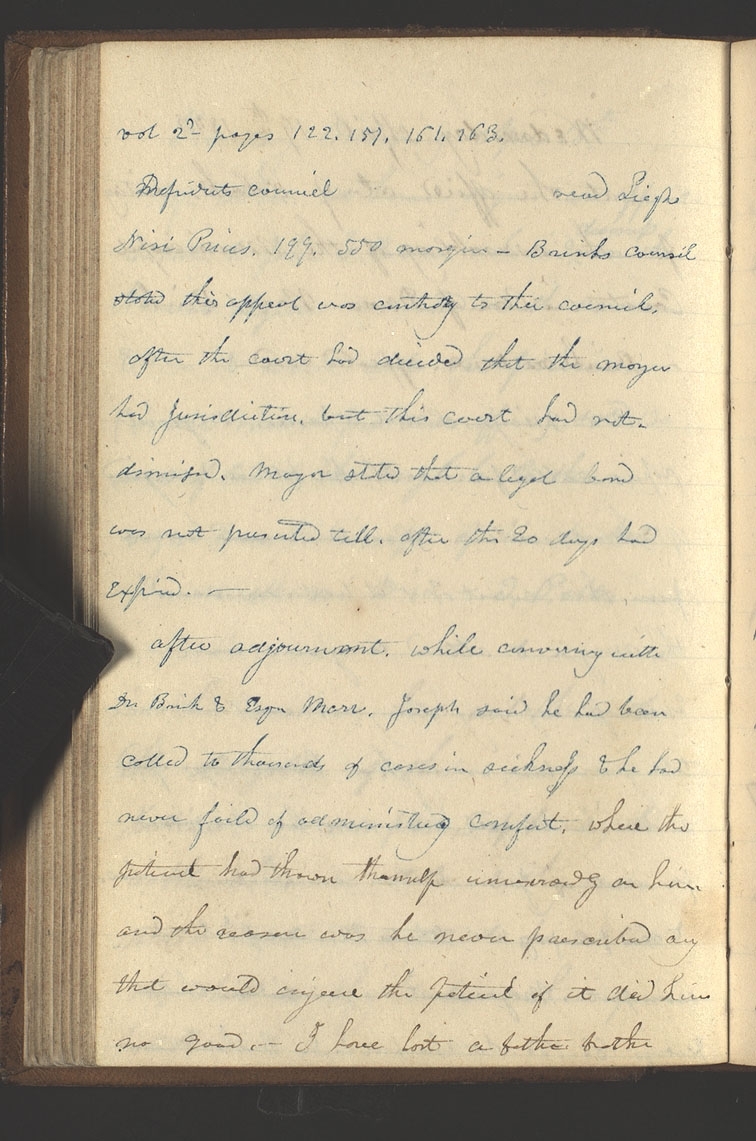 vol 2d pages 122. 157. 161. 163.
Defndts council read Leighs
Nisi Prius. 199. 550 margin - Brinks council
stated this appeal was cntray to their council.
after the court had decided that the mayor
had Jurisdiction. but this court had not.
dismissd. Mayor stated that a legal bond
was not presented till. after the 20 days had
Expired. —
after adjournmnt. while convering with
Dr Brink & Esqr Marr. Joseph said he had been
called to thousands of cases in sickness & he had
never faild of administerig comfort. where the
patient had thrown themself unreservedly on him
and the reason was he never prescribed any
that would injure the patient if it did him
no good. — I have lost a father brother